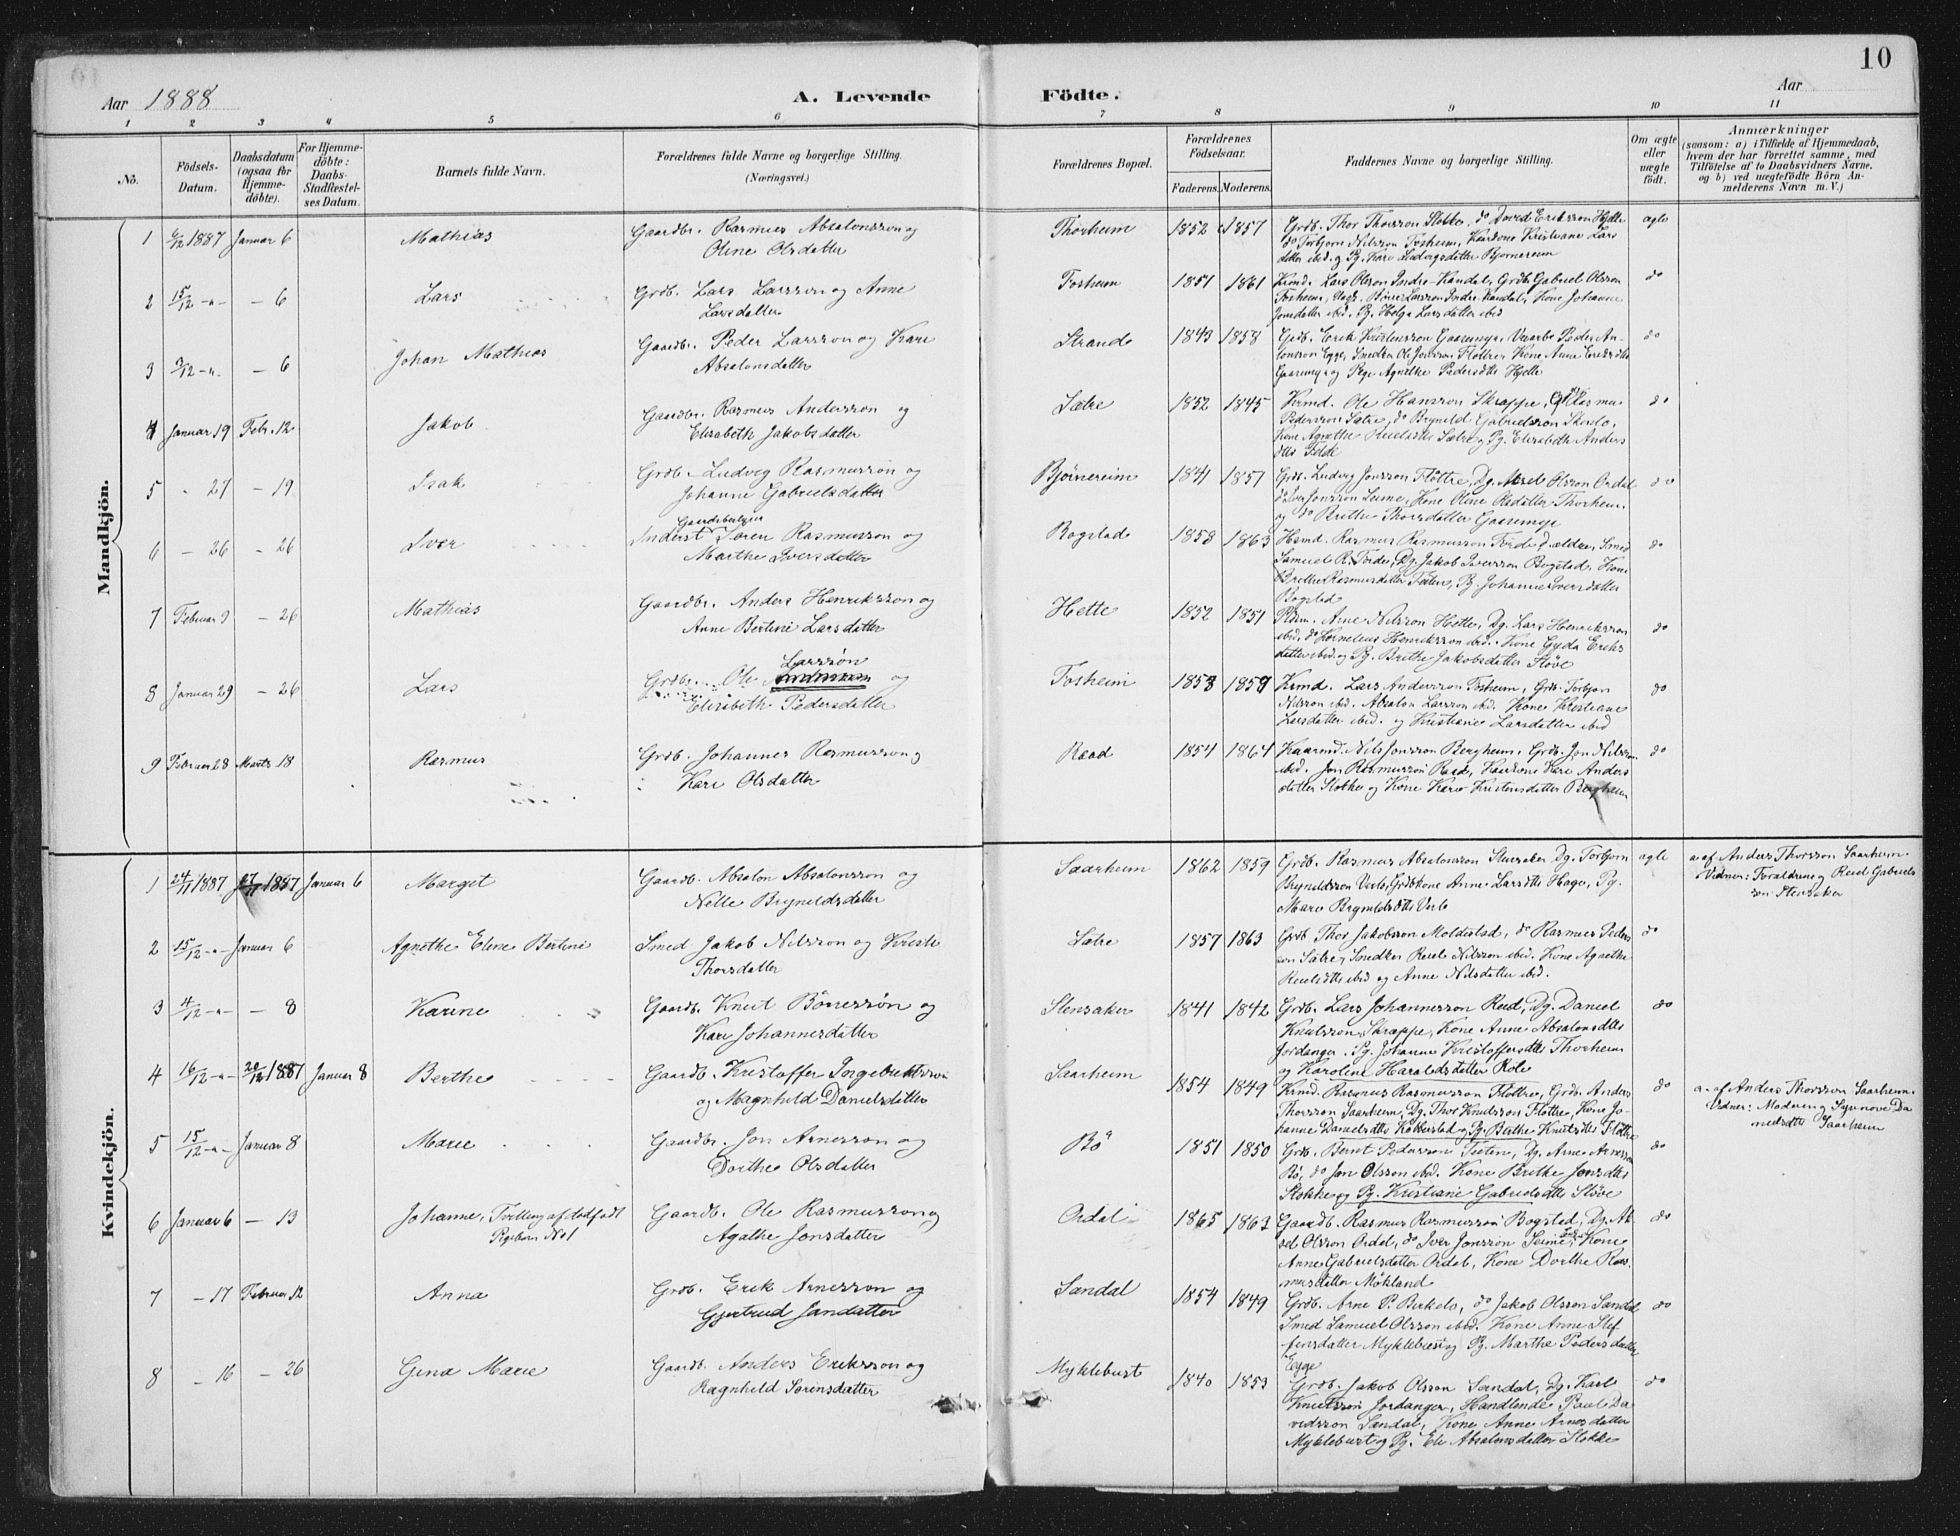 10
Aar 1888
A. Levende Födte.
Aar
1 2 3 4 5 6 7 8 9 10 11
No.
Födsels-Datum.
Daabsdatum (ogsaa for Hjemme-döbte).
For Hjemme-döbte: Daabs-Stadfæstel-ses Datum.
Barnets fulde Navn.
Forældrenes fulde Navne og borgerlige Stilling. (Næringsvei.)
Forældrenes Bopæl.
Forældrenes Födselsaar.
Faderens. Moderens.
Faddernes Navne og borgerlige Stilling.
Om ægte eller uægte födt.
Anmærkninger
(saasom: a) i Tilfælde af Hjemmedaab, hvem der har forrettet samme, med Tilföielse af to Daabsvidners Navne, og b) ved uægtefödte Börn Anmelderens Navn m. V.)
Mandkjön.
1 6/12 1887 Januar 6 Mathias Gaardbr. Rasmus Absalonssøn og
Oline Olsdatter
Thorheim 1852 1857 Grdb. Thor Thorsson Stokke. do David Eriksson Hjelle
do Torbjørn Nilsson Fosheim, Kaarkone Kristiane Lars
datter ibid. og Pg. Kari Ludvigsdatter Bjørnereim
ægte
2 15/12 -"- - 6 Lars Grdb. Lars Larssøn og Anne
Larsdatter
Fosheim 1851 1861 Krmd. Lars Olsson Indre-Vandal, Grdb. Gabriel Olsson
Fosheim, Børre Larsson Indre-Vandal, Kone Johanne
Jonsdatter ibid. Pg. Helga Larsdatter ibid
do
3 3/12 -"- - 6 Johan Mathias Gaardbr. Peder Larsson og Kari
Absalonsdatter
Strand 1843 1858 Grdb. Erik Kristensson Gaasemyr,
Egge, Smedken Ole Jonsson Fløttre, Kone Anne
Gaasemyr og Pige Agnethe Pedersdtr Hjelle
do
4 Januar 19 Febr. 12 Jakob Gaardbr. Rasmus Andersson og
Elisabeth Jakobsdatter
Sætre 1852 1845 Krmd. Ole Hansson Skrappe,
Pederssøn Sætre, do Brynild Gabrielsson
Kone Agnethe Sætre og Pg. Elisabeth Anders
do
5 - 27 - 19 Isak Grdb. Ludvig Rasmussøn og
Johanne Gabrielsdatter
Bjørnereim 1841 1857 Grdb. Ludvig Jonssøn Fløttre, Dg. Olsson Ordal
do Iver Jonsson Seime, Kone Oline Olsdatter Thorheim
og do Brithe Thorsdatter Gaasemyr
do
6 - 26 - 26 Iver Gaardsbestyrer
Inderst Søren Rasmusson og
Marthe Iversdatter
Bogstad 1858 1863 Hsmd. Rasmus Rasmusson Førde d. ældre, Smed
Samuel R. Førde, Dg. Jakob Iversson Bogstad, Kone
Brithe Rasmusdatter Teiten, Pg. Johanne Iversdatter
Bogstad
do
7 Februar 9 - 26 Mathias Gaardbr. Anders Henriksson og
Anne Bertine Larsdatter
Hette 1852 1851 Arne Nilsson Hette, Dg. Lars Henriksson
ibid, do Cornelius Henriksson ibid. Kone Gyda Eriks
datter ibid. og Pg. Brithe Jakobsdatter Støve
do
8 Januar 29 - 26 Lars Larssøn
Grdb. Ole og
Elisabeth Pedersdatter
Fosheim 1858 1859 Krmd. Lars Andersson Fosheim, Grdb. Torbjørn
Nilsson ibid. Absalon Larsson ibid. Kone Kristiane
Larsdatter ibid. og Kristiane Larsdatter ibid
do
9 Februar 28 Marts 18 Rasmus Grdb. Johannes Rasmusson og
Kari Olsdatter
Reed 1854 1864 Kaarmd. Nils Jonsson Bergheim, Grdb. Jon Nilsson
ibid. Jon Rasmusson Reed, Kaarkone Kari Anders
datter Stokke og Kone Kari Kristensdatter Bergheim
do
Kvindekjön.
1 24/11 1887 27/11 1887 Januar 6 Margit Gaardb. Absalon Absalonsson og
Nille Bryneldsdatter
Saarheim 1862 1859 Grdb. Rasmus Absalonsson Stensaker Dg. Torbjørn
Bryneldsson Verlo, Grdbkone Anne Larsdtr Hage, Pg.
Mari Bryneldsdtr Verlo
ægte a. af Anders Thorsson Saarheim.
Vidner: Forældrene og Reid Gabriels
son Stensaker
2 15/12 -"- Januar 6 Agnethe Eline Bertine Smed Jakob Nilsson og Kristi
Thorsdatter
Sætre 1857 1863 Grdb. Thor Jakobsson Moldestad, do Rasmus Peders
son Sætre, Smedker Reiel Nilsson ibid. Kone Agnethe
Reielsdtr ibid og Anne Nilsdatter ibid.
do
3 4/12 -"- - 8 Karine Gaardb. Knut Børresson og
Kari Johannesdatter
Stensaker 1841 1842 Grdb. Lars Johannesson Reed, Dg. Daniel
Knutsson Skrappe, Kone Anne Absalonsdtr
Jordanger. Pg. Johanne Kristoffersdtr Thorheim
og Karoline Haraldsdatter Role
do
4 16/12 -"- 20/12 1887 Januar 8 Berthe Gaardb. Kristoffer Ingebriktsson
og Magnhild Danielsdatter
Saarheim 1854 1849 Krmd. Rasmus Rasmusson Fløttre, Grdb. Anders
Thorsson Saarheim, Dg. Thor Knutsson Fløttre, Kone Jo
hanne Danielsdtr og Pg. Berthe Knutsdtr Fløttre
do a. af Anders Thorsson Saarheim.
Vidner: Moderen og Synnøve Da
nielsdtr Saarheim
5 15/12 -"- Januar 8 Marie Gaardb. Jon Arnesson og
Dorthe Olsdatter
Bø 1851 1850 Grdb. Bernt Pedersson Teiten, Dg. Arne Arnesson
Bø, do Jon Olsson ibid. Kone Brithe Jonsdtr
Stokke og Pg. Kristiane Gabrielsdtr Støve
do
6 Januar 6 - 13 Johanne, Tvilling af dødfødt
Pigebarn No 1
Gaardb. Ole Rasmusson og
Agathe Jonsdatter
Ordal 1865 1863 Gaardb. Rasmus Rasmusson Bogstad, Dg. Ak
sel Olsson Ordal, do Iver Jonsson Seime, Kone
Anne Gabrielsdatter Ordal, Kone Dorthe Ras
musdatter Mökland
do
7 - 17 Februar 12 Anna Grdb. Erik Arnesson og
Gjertrud Jansdatter
Sandal 1854 1849 Grdb. Arne P. Birkelo, do Jakob Olsson Sandal
Smed Samuel Olsson ibid. Kone Anne Stef
fensdatter Myklebust og Pg. Marthe Pedersdatter
Egge
do
8 - 16 - 26 Gina Marie Gaardb. Anders Eriksson og
Ragnhild Sørensdatter
Myklebust 1840 1853 Grdb. Jakob Olsson Sandal, Dg. Karl
Knutsson Jordanger, Handlende Paul Da
vidsson Sandal, Kone Anne Arnesdatter
Myklebust og Pg. Eli Absalonsdatter Stokke
do